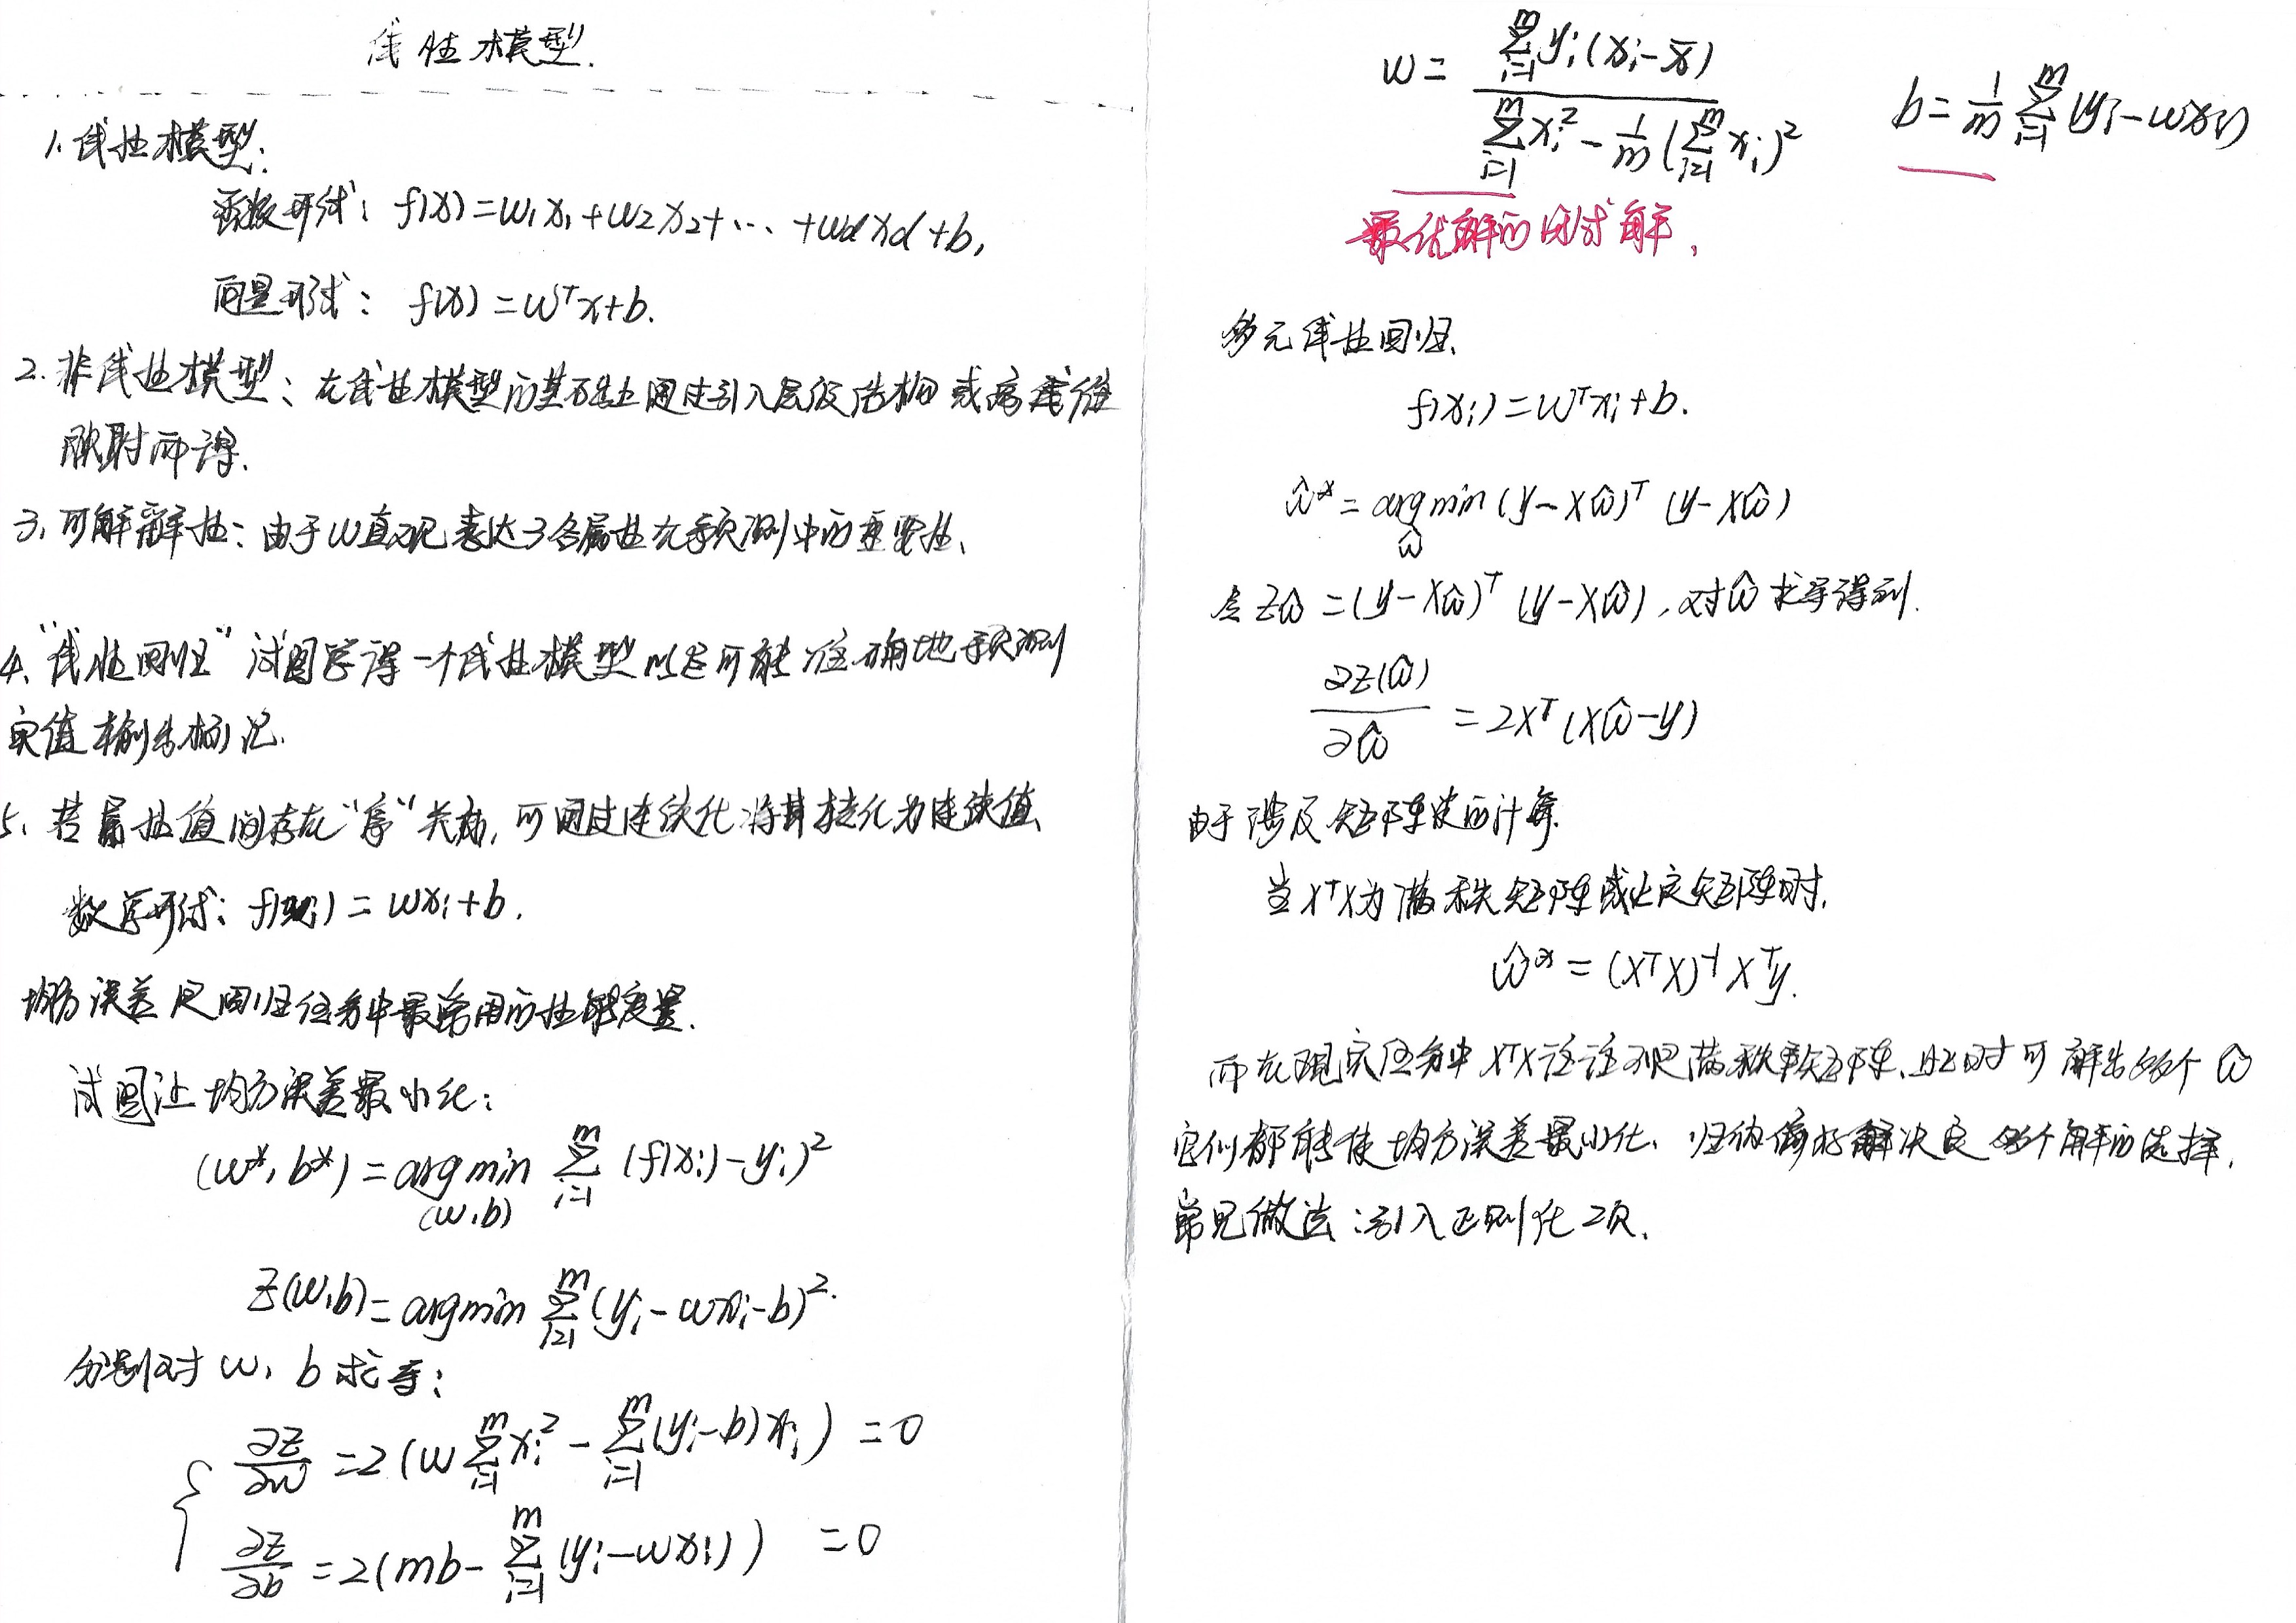 线性模型.
1. 线性模型:
函数形式: f(x)=w₁x₁+w₂x₂+…+wdxd+b,
向量形式: f(x)=wᵀx+b.
2. 非线性模型: 在线性模型的基础上通过引入层级结构或高维
映射而得.
3. 可解释性: 由于w直观表达了各属性在预测中的重要性、
4. “线性回归”试图学得一个线性模型以尽可能准确地预测
实值输出标记.
5、若属性值间存在“序”关系, 可通过连续化将其转化为连续值、
数学形式: f(xᵢ)=wxᵢ+b.
均方误差是回归任务中最常用的性能度量.
试图让均方误差最小化:
(w*, b*) = arg min (w,b) ∑ᵢ₌₁ᵐ (f(xᵢ)-yᵢ)²
Z(w,b) = argmin ∑ᵢ₌₁ᵐ (yᵢ-wxᵢ-b)².
分别对 w, b 求导:
∂Z/∂w = 2(w∑ᵢ₌₁ᵐxᵢ² - ∑ᵢ₌₁ᵐ(yᵢ-b)xᵢ) = 0
∂Z/∂b = 2(mb-∑ᵢ₌₁ᵐ(yᵢ-wxᵢ)) = 0
w = ∑ᵢ₌₁ᵐyᵢ(xᵢ-x̄) / (∑ᵢ₌₁ᵐxᵢ² - 1/m(∑ᵢ₌₁ᵐxᵢ)²)   b = 1/m ∑ᵢ₌₁ᵐ(yᵢ-wxᵢ)
最优解的闭式解,
多元线性回归、
f(xᵢ)=wᵀxᵢ+b.
ŵ* = arg min ŵ (y-Xŵ)ᵀ (y-Xŵ)
令Zŵ=(y-Xŵ)ᵀ (y-Xŵ), 对ŵ求导得到.
∂Z(ŵ)/∂ŵ = 2Xᵀ(Xŵ-y)
由于涉及矩阵逆的计算.
当XᵀX为满秩矩阵或正定矩阵时,
ŵ* = (XᵀX)⁻¹Xᵀy.
而在现实任务中XᵀX往往不是满秩矩阵、此时可解出多个ŵ
它们都能使均方误差最小化、归纳偏好解决定多个解的选择,
常见做法: 引入正则化项.